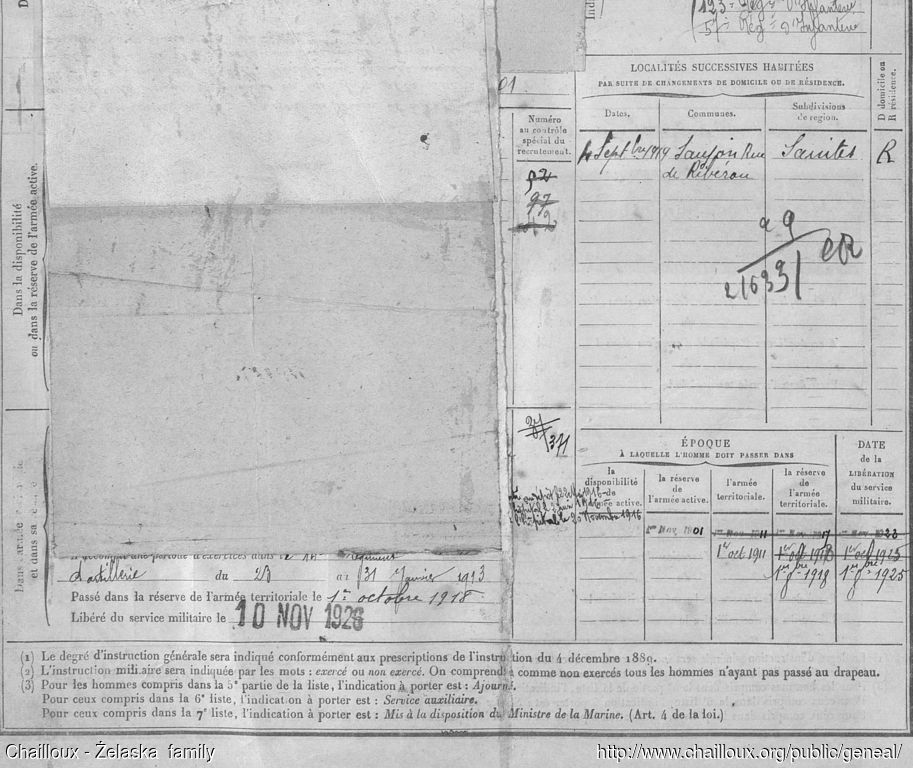 123e Rég d'Infanterie
57e Rég d'Infanterie
LOCALITÉS SUCCESSIVES HABITÉES
PAR SUITE DE CHANGEMENTS DE DOMICILE OU DE RÉSIDENCE.
Dates.
Communes.
Subdivisions
de région.
D domicile ou
R résidence.
01
Numéro
au contrôle
spécial du
recrutement.
Sept 1919
Saujon Rue
de Riberou
Saintes
R
97
Dans la disponibilité
ou dans la réserve de l'armée active.
371
ÉPOQUE
À LAQUELLE L'HOMME DOIT PASSER DANS
DATE
de la
LIBÉRATION
du service
militaire.
la
disponibilité
de
l'armée active.
la réserve
de
l'armée active.
l'armée
territoriale.
la réserve
de
l'armée
territoriale.
1er Nov. 1901
1er Nov. 1911
1er Nov. 1917
1er oct 1911
1er oct 1918
1er oct 1925
1918
1925
novembre 1916
et dans sa
d'artillerie du 23 au 31 Janvier 1913
Passé dans la réserve de l'armée territoriale le 1er octobre 1918
Libéré du service militaire le 10 NOV 1926
(1) Le degré d'instruction générale sera indiqué conformément aux prescriptions de l'instruction du 4 décembre 1889.
(2) L'instruction militaire sera indiquée par les mots : exercé ou non exercé. On comprend comme non exercés tous les hommes n'ayant pas passé au drapeau.
(3) Pour les hommes compris dans la 5e partie de la liste, l'indication à porter est : Ajourné.
Pour ceux compris dans la 6e liste, l'indication à porter est : Service auxiliaire.
Pour ceux compris dans la 7e liste, l'indication à porter est : Mis à la disposition du Ministre de la Marine. (Art. 4 de la loi.)
Chailloux - Żelaska family
http://www.chailloux.org/public/geneal/